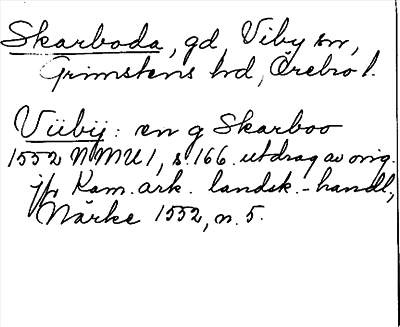 Skarboda, gd, Viby sn,
Grimstens hd, Örebro l.
Viibij: en g Skarboo
1552 NMU 1, s. 166. utdrag av orig.
jfr Kam. ark. landsk.-handl.,
Närke 1552, n. 5.